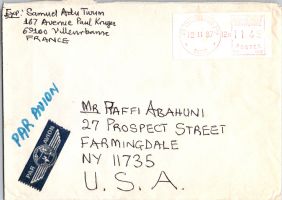 Exp: Samuel Ardy Twum
167 Avenue Paul Kruger
69100 Villeurbanne
FRANCE
12-11-87
PAR AVION
PAR AVION
MR RAFFI ABAHUNI
27 PROSPECT STREET
FARMINGDALE
NY 11735
U.S.A.